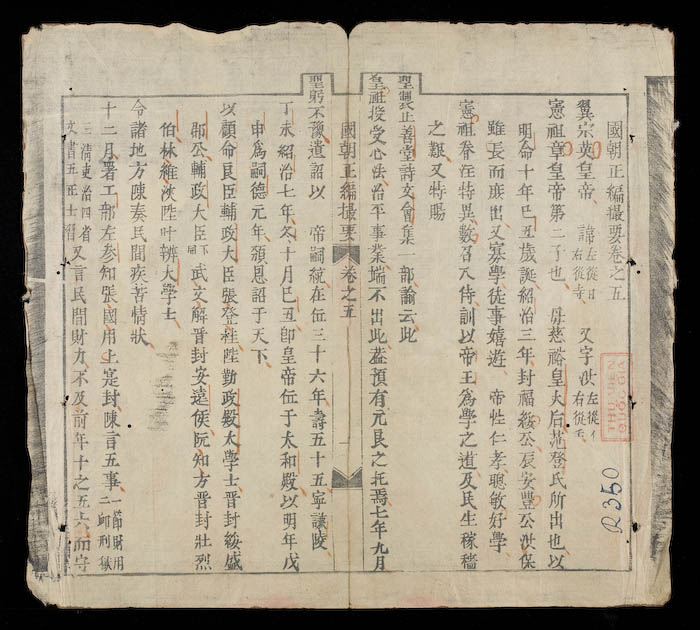 國朝正編撮要卷之五
翼宗英皇帝 諱 左從日 右從寺 又字洪 左從亻 右從壬
憲祖章皇帝第二子也 母慈裕皇太后范登氏所出也以
明命十年己丑歲誕紹治三年封福綏公辰安豐公洪保
雖長而庶出又寡學徒事嬉遊 帝性仁孝聰敏好學
憲祖眷注特異數召入侍訓以帝王爲學之道及民生稼穡
之艱又特賜
聖製止善堂詩文會集一部諭云此
皇祖授受心法治平事業端不出此蓋預有元良之托焉七年九月
國朝正編撮要 卷之五 一
聖躬不豫遺詔以 帝嗣統在位三十六年壽五十五寧謙陵
丁未紹治七年冬十月己丑卽皇帝位于太和殿以明年戊
申爲嗣德元年頒恩詔于天下
以顧命良臣輔政大臣張登桂陞勤政殿大學士晉封綏盛
郡公輔政大臣 武文解晉封安遠侯阮知方晉封壯烈
伯林維浹陞叶辨大學士
令諸地方陳奏民間疾苦情狀
十二月署工部左參知張國用上寔封陳言五事 一節財用 二卹刑獄
三淸吏治四省文書五正士習 又言民間財力不及前年十之五六而守
THU VIEN
QUOC GIA
R350